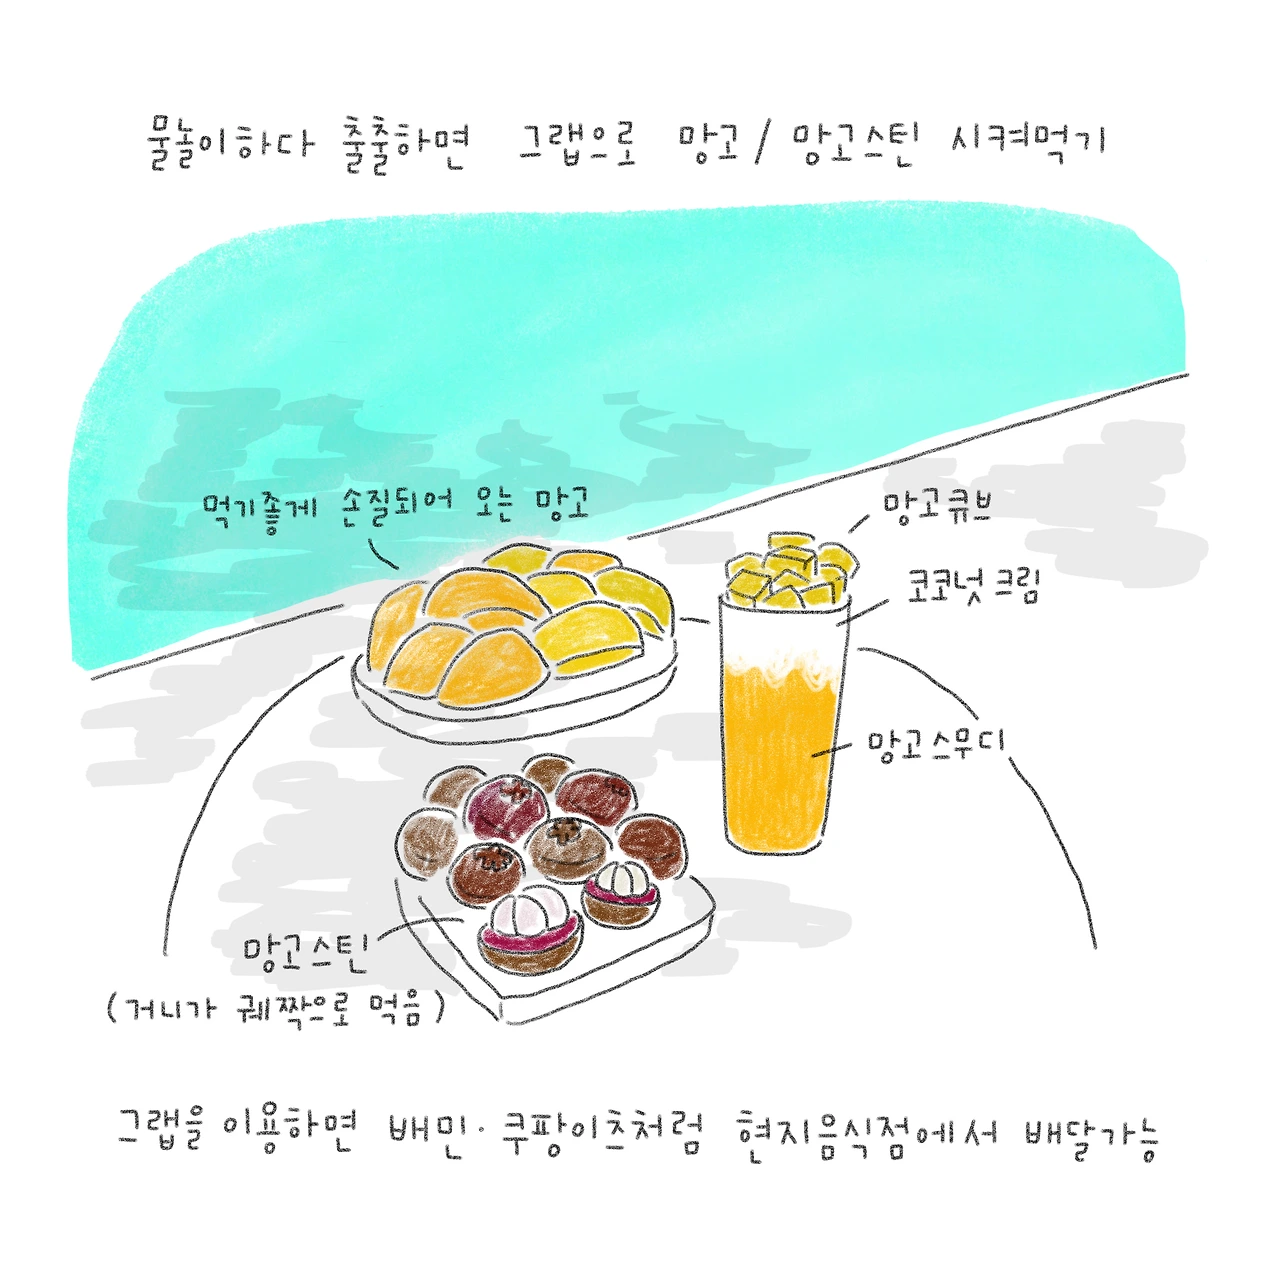 물놀이하다 출출하면 그랩으로 망고 / 망고스틴 시켜먹기
먹기좋게 손질되어 오는 망고
망고큐브
코코넛 크림
망고스무디
망고스틴
(거니가 궤짝으로 먹음)
그랩을 이용하면 배민·쿠팡이츠처럼 현지음식점에서 배달가능